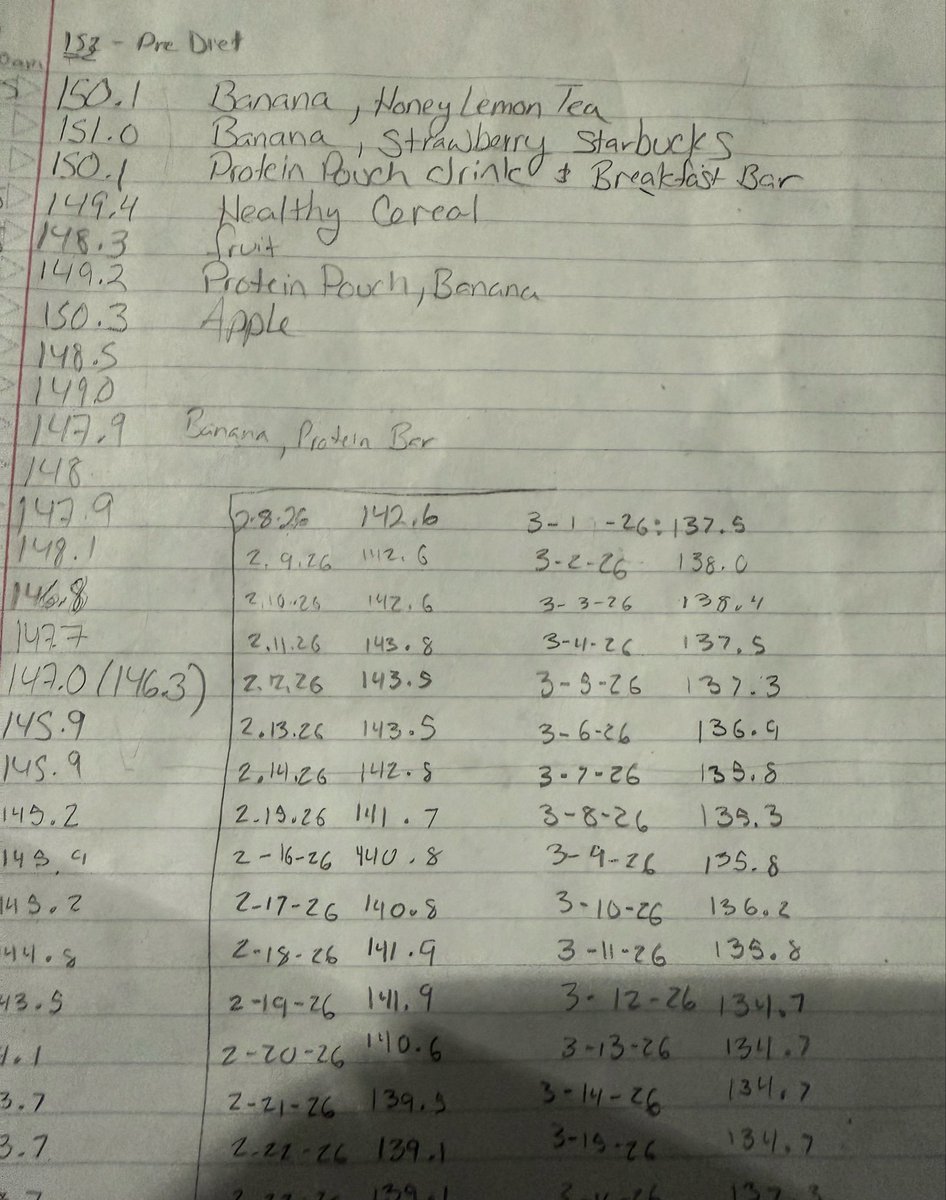 153 - Pre Diet
150.1 Banana, Honey Lemon Tea
151.0 Banana, Strawberry Starbucks
150.1 Protein Pouch drink & Breakfast Bar
149.4 Healthy Cereal
148.3 fruit
149.2 Protein Pouch, Banana
150.3 Apple
148.5
149.0
147.9 Banana, Protein Bar
148
147.9 2.8.26 142.6 3-1-26: 137.5
148.1 2.9.26 142.6 3-2-26 138.0
146.8 2.10.26 142.6 3-3-26 138.4
147.7 2.11.26 143.8 3-4-26 137.5
147.0 (146.3) 2.12.26 143.5 3-5-26 137.3
145.9 2.13.26 143.5 3-6-26 136.9
145.9 2.14.26 142.8 3-7-26 135.8
145.2 2.15.26 141.7 3-8-26 135.3
145.9 2-16-26 140.8 3-9-26 135.8
145.2 2-17-26 140.8 3-10-26 136.2
44.8 2-18-26 141.9 3-11-26 135.8
43.5 2-19-26 141.9 3-12-26 134.7
4.1 2-20-26 140.6 3-13-26 134.7
3.7 2-21-26 139.5 3-14-26 134.7
3.7 2-22-26 139.1 3-15-26 134.7
139.1